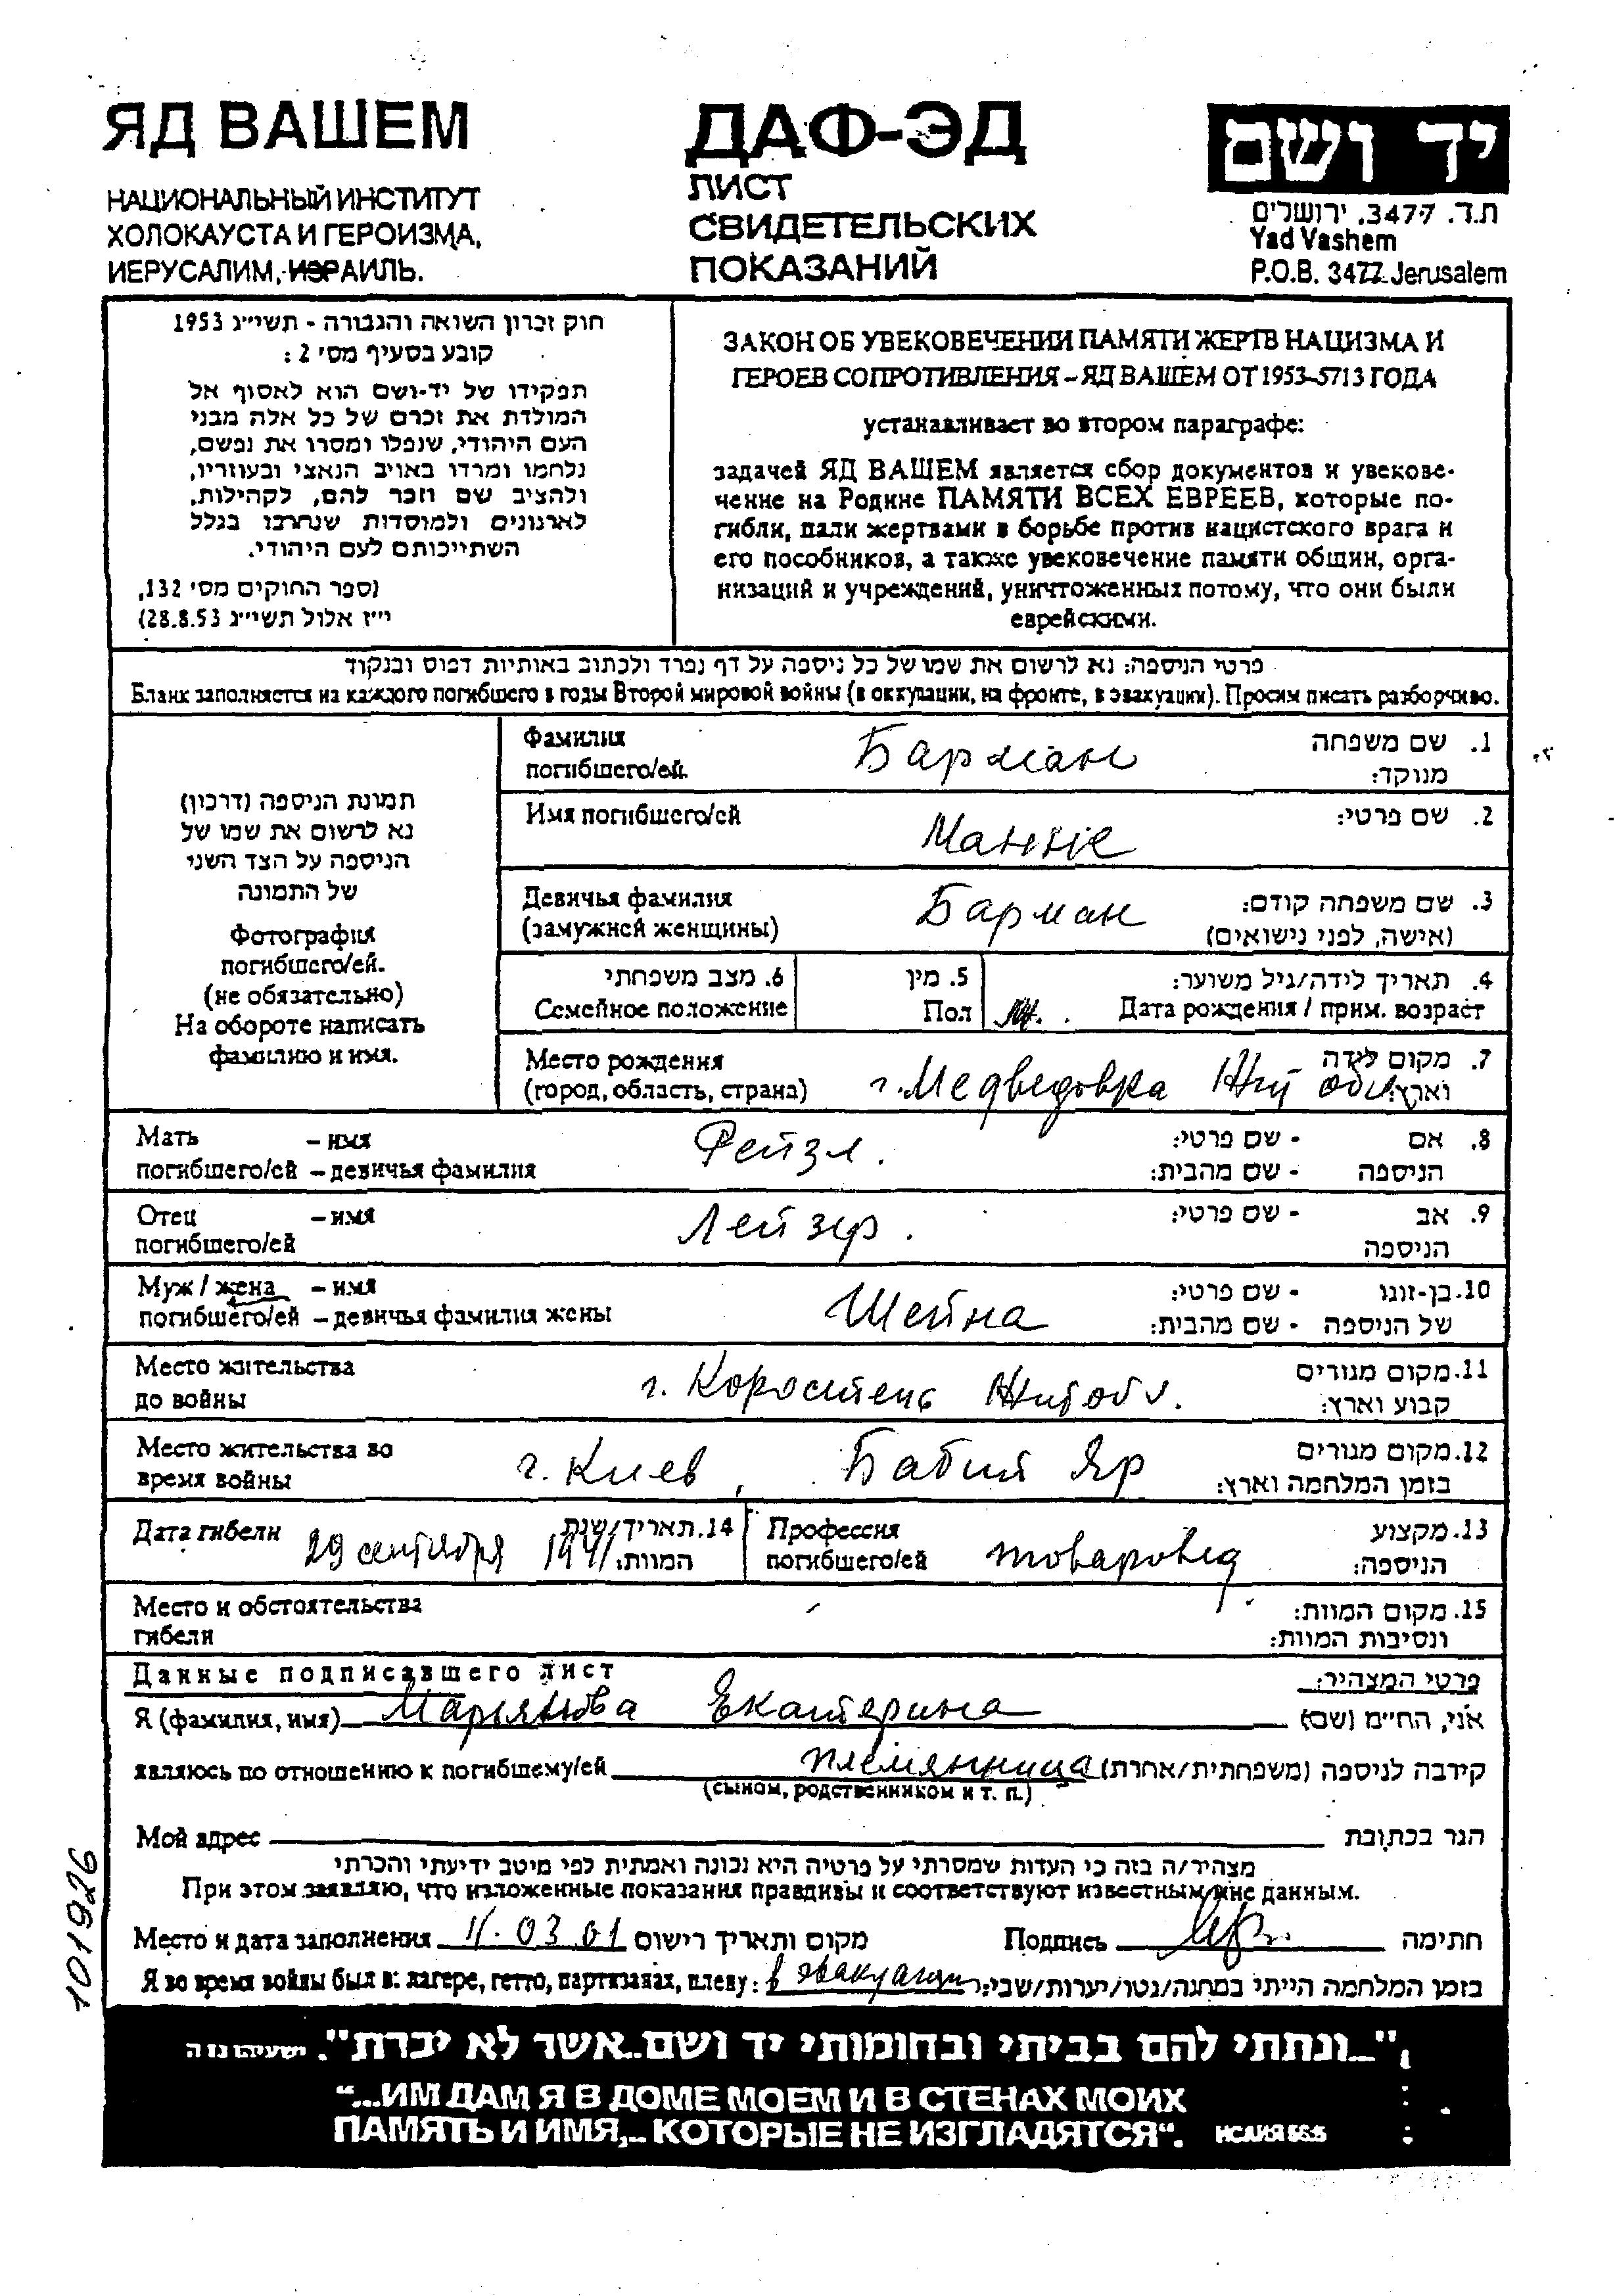 ЯД ВАШЕМ
НАЦИОНАЛЬНЫЙ ИНСТИТУТ
ХОЛОКАУСТА И ГЕРОИЗМА,
ИЕРУСАЛИМ, ИЗРАИЛЬ.
ДАФ-ЭД
ЛИСТ
СВИДЕТЕЛЬСКИХ
ПОКАЗАНИЙ
יד ושם
ת.ד. 3477. ירושלים
Yad Vashem
P.O.B. 3477 Jerusalem
חוק זכרון השואה והגבורה - תשי״ג 1953
קובע בסעיף מס׳ 2:
תפקידו של יד-ושם הוא לאסוף אל
המולדת את זכרם של כל אלה מבני
העם היהודי, שנפלו ומסרו את נפשם,
נלחמו ומרדו באויב הנאצי ובעוזריו,
ולהציב שם וזכר להם, לקהילות,
לארגונים ולמוסדות שנחרבו בגלל
השתייכותם לעם היהודי.
(ספר החוקים מס׳ 132,
י״ז אלול תשי״ג 28.8.53)
ЗАКОН ОБ УВЕКОВЕЧЕНИИ ПАМЯТИ ЖЕРТВ НАЦИЗМА И
ГЕРОЕВ СОПРОТИВЛЕНИЯ – ЯД ВАШЕМ ОТ 1953-5713 ГОДА
устанавливает во втором параграфе:
задачей ЯД ВАШЕМ является сбор документов и увекове-
чение на Родине ПАМЯТИ ВСЕХ ЕВРЕЕВ, которые по-
гибли, пали жертвами в борьбе против нацистского врага и
его пособников, а также увековечение памяти общин, орга-
низаций и учреждений, уничтоженных потому, что они были
еврейскими.
פרטי הניספה: נא לרשום את שמו של כל ניספה על דף נפרד ולכתוב באותיות דפוס ובנקוד
Бланк заполняется на каждого погибшего в годы Второй мировой войны (в оккупации, на фронте, в эвакуации). Просим писать разборчиво.
תמונת הניספה (דרכון)
נא לרשום את שמו של
הניספה על הצד השני
של התמונה
Фотография
погибшего/ей.
(не обязательно)
На обороте написать
фамилию и имя.
Фамилия Барман 1. שם משפחה
погибшего/ей. מנוקד:
Имя погибшего/ей 2. שם פרטי:
Девичья фамилия Барман 3. שם משפחה קודם:
(замужней женщины) (אישה, לפני נישואים)
6. מצב משפחתי 5. מין 4. תאריך לידה/גיל משוער:
Семейное положение Пол Дата рождения / прим. возраст
Место рождения г. Медведовка Жит обл 7. מקום לידה
(город, область, страна) וארץ:
Мать – имя Рейзл. 8. אם - שם פרטי:
погибшего/ей – девичья фамилия הניספה - שם מהבית:
Отец – имя Лейзер. 9. אב - שם פרטי:
погибшего/ей הניספה
Муж / жена – имя Шейна 10. בן-זוגו - שם פרטי:
погибшего/ей – девичья фамилия жены של הניספה - שם מהבית:
Место жительства г. Коростень Жит обл. 11. מקום מגורים
до войны קבוע וארץ:
Место жительства во г. Киев, Бабий Яр 12. מקום מגורים
время войны בזמן המלחמה וארץ:
Дата гибели 29 сентября 1941 14. תאריך/שנת המוות:
Профессия товаровед 13. מקצוע
погибшего/ей הניספה:
Место и обстоятельства 15. מקום המוות:
гибели ונסיבות המוות:
Данные подписавшего лист פרטי המצהיר:
Я (фамилия, имя) Марьянова Екатерина אני, החי״מ (שם)
являюсь по отношению к погибшему/ей племянница קירבה לניספה (משפחתית/אחרת)
(сыном, родственником и т. п.)
Мой адрес הגר בכתובת
מצהיר/ה בזה כי העדות שמסרתי על פרטיה היא נכונה ואמתית לפי מיטב ידיעתי והכרתי
При этом заявляю, что изложенные показания правдивы и соответствуют известным мне данным.
Место и дата заполнения 11.03.01 מקום ותאריך רישום Подпись חתימה
Я во время войны был в: лагере, гетто, партизанах, плену: в эвакуации בזמן המלחמה הייתי במחנה/גטו/יערות/שבי:
1019826
"...ונתתי להם בביתי ובחומותי יד ושם...אשר לא יכרת". ישעיהו נו ה
"...ИМ ДАМ Я В ДОМЕ МОЕМ И В СТЕНАХ МОИХ
ПАМЯТЬ И ИМЯ,... КОТОРЫЕ НЕ ИЗГЛАДЯТСЯ". ИСАИЯ 56:5